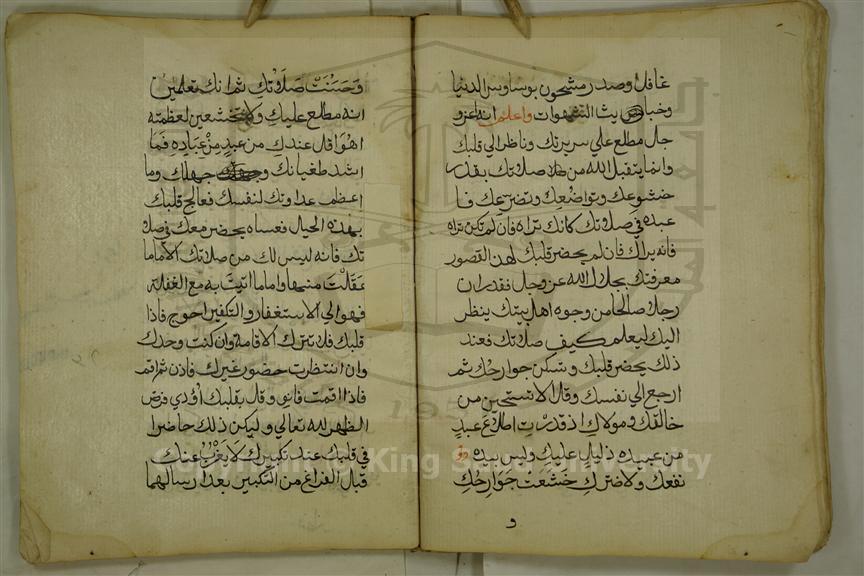 غافل وصدر مشحون بوساوس الدنيا
وخبائث الشهوات واعلم انه عز و
جل مطلع علي سريرتك وناظر الي قلبك
وانما يتقبل الله من صلاتك بقدر
خشوعك وتواضعك وتضرعك فا
عبده في صلاتك كانك تراه فان لم تكن تراه
فانه يراك فان لم يحضر قلبك لهذا القصور
معرفتك بجلال الله عز وجل فقدر ان
رجلا صالحا من وجوه اهل بيتك ينظر
اليك ليعلم كيف صلاتك فعند
ذلك يحضر قلبك وتسكن جوارحك ثم
ارجع الي نفسك وقل الا تستحين من
خالقك ومولاك اذ قدرت اطلاع عبد
من عبيده ذليل عليك وليس بيده
نفعك ولا ضرك خشعت جوارحك
و
وحسنت صلاتك ثم انك تعلمين
انه مطلع عليك ولا تخشعين لعظمته
اهو اقل عندك من عبد من عباده فما
اشد طغيانك وجهلك وما
اعظم عداوتك لنفسك فعالج قلبك
بهذه الحيل فعساه يحضر معك في صلا
تك فانه ليس لك من صلاتك الا ما
عقلت منها واما ما اتيت به مع الغفلة
فهو الي الاستغفار والتكفير احوج فاذا
قلبك فلا تترك الاقامة وان كنت وحدك
وان انتظرت حضور غيرك فاذن ثم اقم
فاذا اقمت فانو وقل بقلبك اؤدي فرض
الظهر لله تعالي وليكن ذلك حاضرا
في قلبك عند تكبيرك لا يغرب عنك
قبل الفراغ من التكبير بعد ارسالهما
King Saud University